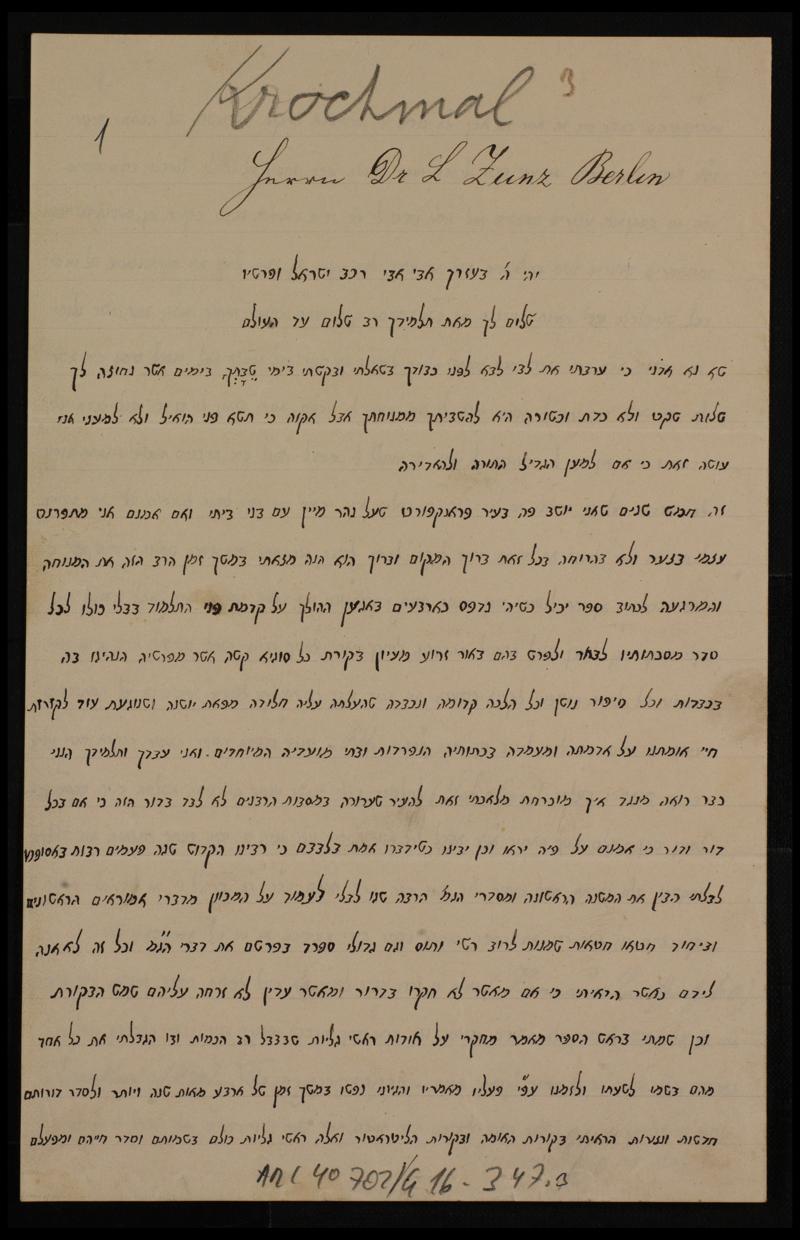 Krochmal 3
1
Herrn Dr L Zunz Berlin
יהי ה' בעזרך אבי אבי רכב ישראל ופרשיו
שלום לך מאת תלמידך רב שלום עד העולם
שא נא אדני כי ערבתי את לבי לבא לפני כבודך בשאלתי ובקשתי בימי בימים אשר נחוצה לך
שלות שקט ולא כדת וכשורה היא להשביתך ממנוחתך אבל אקוה כי תשא פני הואיל ולא למעני אני
עושה זאת כי אם למען הגדיל התורה ולהאדירה
זה חמש שנים שאני יושב פה בעיר פראנקפורט שעל נהר מיין עם בני ביתי ואם אמנם אני מתפרנס
עצמי בצער ולא בהרוחה בכל זאת ברוך המקום וברוך הוא הנה מצאתי במשך זמן הרב הזה את המנוחה
והמרגעה לכתוב ספר יכיל כשיהי' נדפס כארבעים באגען ההולך על קדמת פני התלמוד בבלי כולו לכל
סדר מסכתותיו לבאר ולפרש בהם באור זרוע מעיון בקורת כל סוגיא קשה אשר מפרשיה הנהיגו בה
בכבדות וכל סיפור נושן וכל הלכה קדומה ונכבדה שהעלתה עליה חלודה מפאת יושנה ושנוגעת עוד לקורות
חיי אומתנו על אדמתה ומעמדה בכתותיה הנפרדות ובתי מועדיה המיוחדים. ואני עבדך ותלמידך הנני
כבר רואה מנגד איך מוכרחת מלאכתי זאת להעיר שערורה במסבות הרבנים לא לבד בדור הזה כי אם בכל
דור ודור כי אמנם על פיה יראו וכן יבינו כשידברו אמת בלבבם כי רבינו הקדוש שגה פעמים רבות באסופתו
לבלתי הבין את המשנה הראשונה ומסדרי הגמ' הרבה שגו לבלי לעמוד על המכוון מדברי אמוראים הראשונים
וביחוד חטאו חטאות שמנות לרוב רשי ותוס וגם גדולי ספרד בפרשם את דברי הגמ' וכל זה לא אנה
לידם כאשר הראיתי כי אם מאשר לא חקרו בדרור ומאשר עדין לא זרחה עליהם שמש הבקורת
וכן שמתי בראש הספר מאמר מחקרי על אודות ראשי גליות שבבבל רב הכמות ובו הגבלתי את כל אחד
מהם בשמו לשעתו ולזמנו עפ"י פעליו מאמריו והגיוני נפשו במשך זמן של ארבע מאות שנה ויותר ולסדר דורותם
חדשות ונצורות הראיתי בקורות האומה ובקורות הליטראטור ואלה ראשי גליות כולם בשמותם וסדר חייהם ומפעלם
ARC 40 702/G 16-347.3